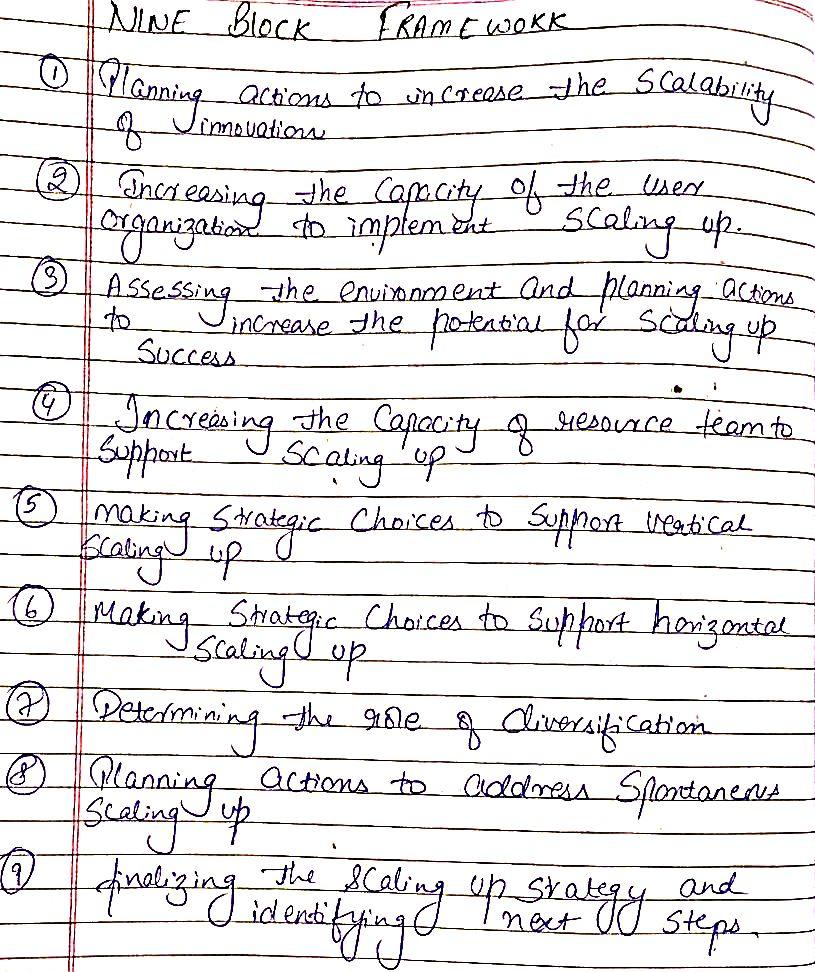 NINE BLOCK FRAMEWORK
① Planning actions to increase the Scalability
of innovation
② Increasing the Capacity of the user
organization to implement Scaling up.
③ Assessing the environment and planning actions
to increase the potential for Scaling up
Success
④ Increasing the Capacity of resource team to
Support Scaling up
⑤ Making Strategic Choices to Support vertical
Scaling up
⑥ Making Strategic Choices to Support horizontal
Scaling up
⑦ Determining the role of diversification
⑧ Planning actions to address Spontanerus
Scaling up
⑨ finalizing the Scaling up stategy and
identifying next steps.